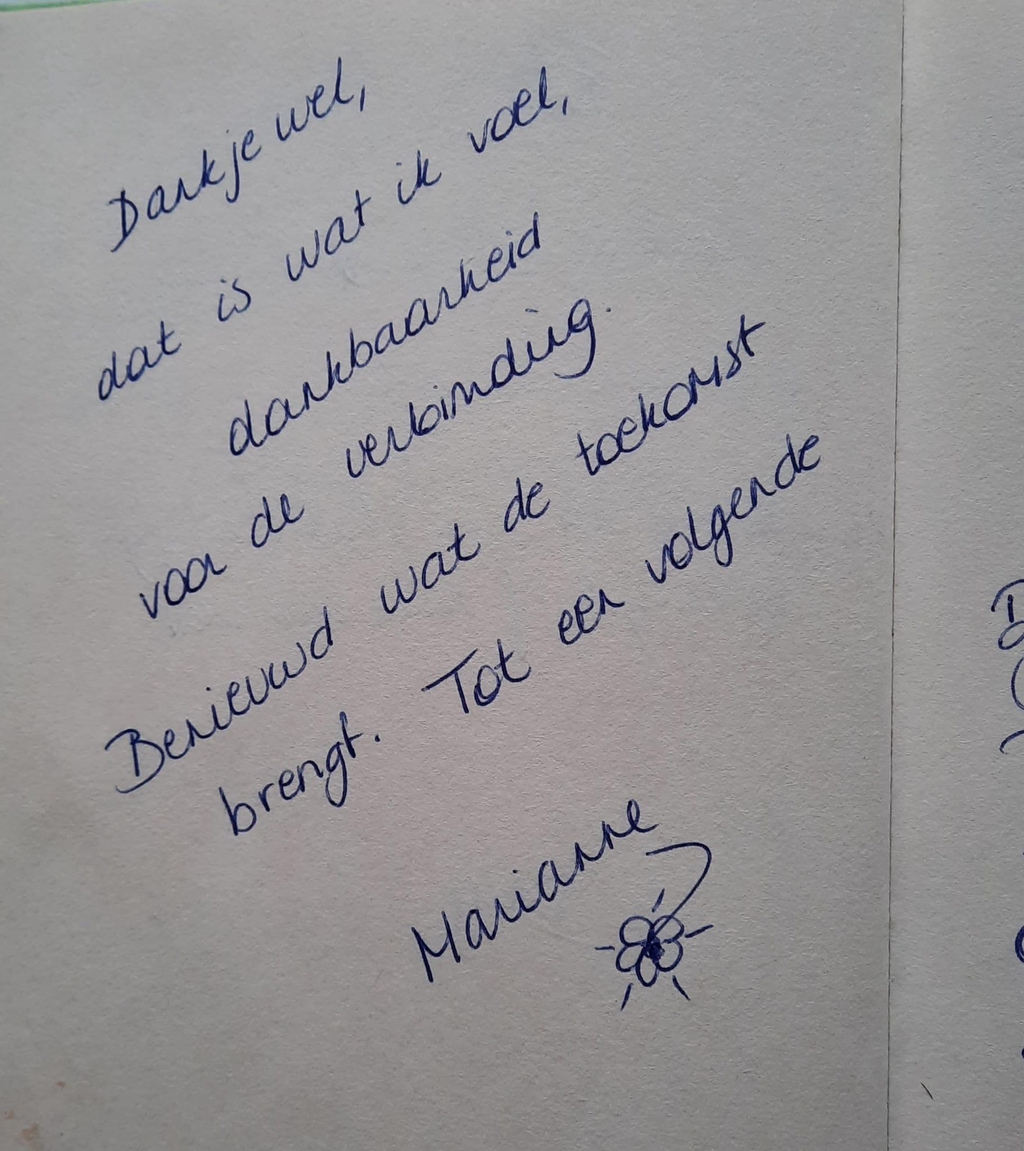 Dankjewel,
dat is wat ik voel,
dankbaarheid
voor de verbinding.
Benieuwd wat de toekomst
brengt. Tot een volgende
Marianne